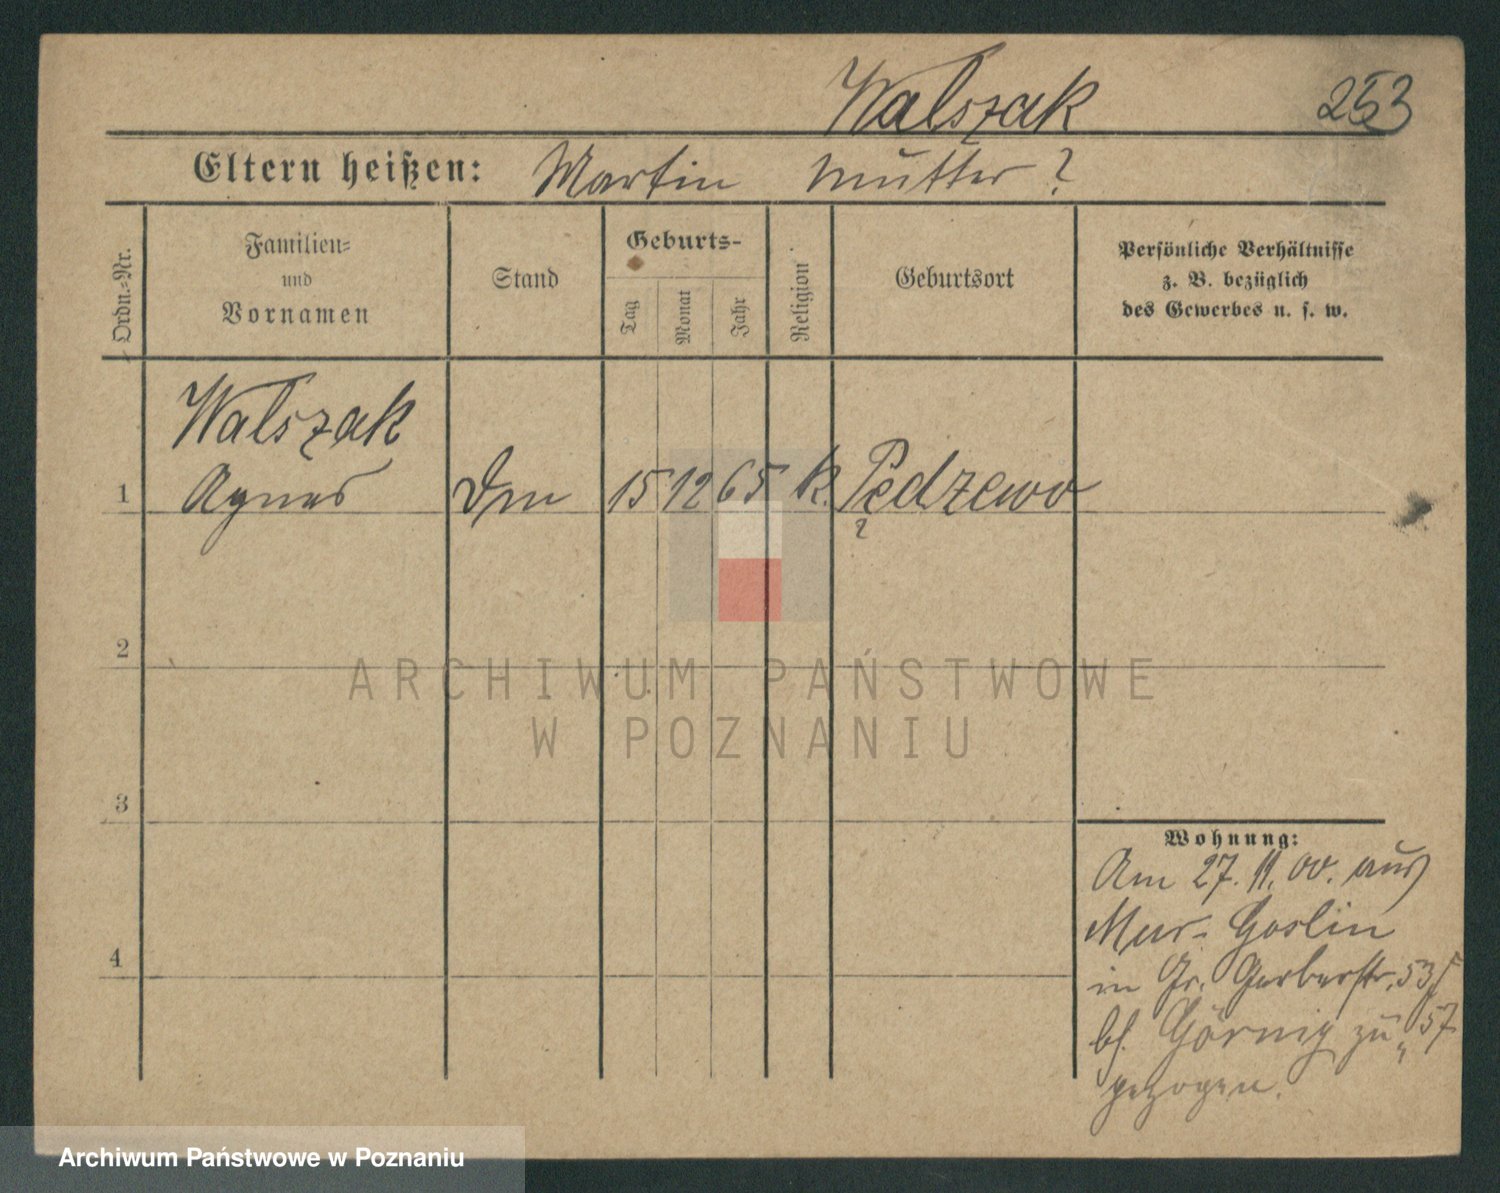 Walszak 253
Eltern heißen: Martin Mutter ?
Ordn.=Nr.
Familien=
und
Vornamen
Stand
Geburts-
Tag
Monat
Jahr
Religion
Geburtsort
Persönliche Verhältnisse
z. B. bezüglich
des Gewerbes u. s. w.
Walszak
1 Agnes 15 12 65 k. Pędzewo
?
2
ARCHIWUM PAŃSTWOWE
W POZNANIU
3
Wohnung:
Am 27. 11. 00. aus
Mur- Goslin
in Gr. Gerberstr. 53
4
bei Görnig zu 57
gezogen.
Archiwum Państwowe w Poznaniu